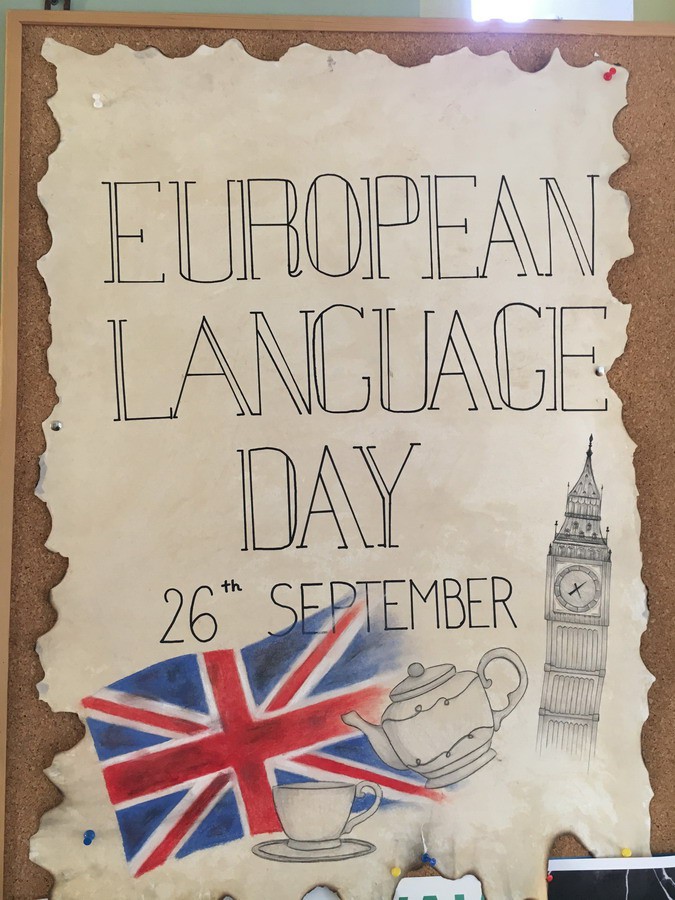 EUROPEAN
LANGUAGE
DAY
26th SEPTEMBER